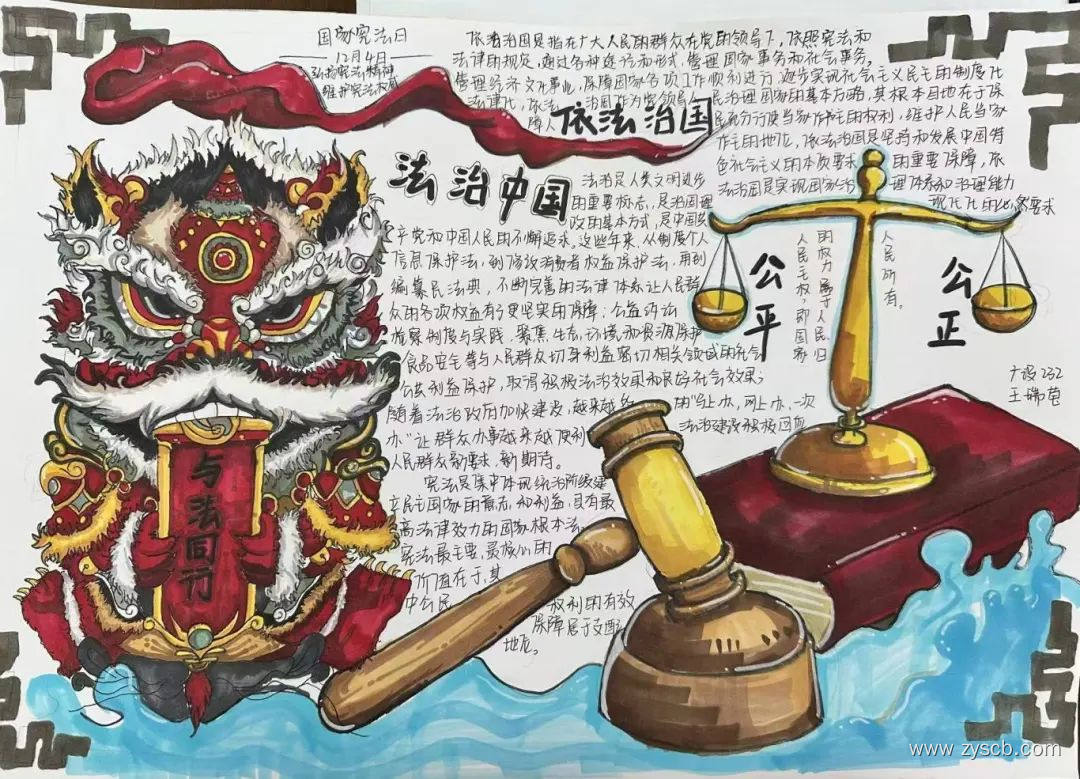 国家宪法日
12月4日
弘扬宪法精神
维护宪法权威
依法治国是指在广大人民的群众在党的领导下，依照宪法和
法律的规定，通过各种途径和形式，管理国家事务和社会事务，
管理经济文化事业，保障国家各项工作顺利进行，逐步实现社会主义民主的制度化
法律化，依法治国作为党领导人民治理国家的基本方略，其根本目地在于保
障人民充分行使当家作主的权利，维护人民当家
作主的地位，依法治国是坚持和发展中国特
色社会主义的本质要求 的重要保障，依
法治国是实现国家治理体系和治理能力
现代化的必然要求
依法治国
法治中国
法治是人类文明进步
的重要标志，是治国理
政的基本方式，是中国共
产党和中国人民的不懈追求，这些年来，从制度个人
信息保护法，到修改消费者权益保护法，再到
编纂民法典，不断完善的法律体系让人民群
众的各项权益有了更坚实的保障；公益诉讼
检察制度与实践，聚焦生态、环境和资源保护
食品安全等与人民群众切身利益密切相关领域的社会
公共利益保护，取得积极法治效果和良好社会效果；
随着法治政府加快建设，越来越多的"马上办，网上办，一次
办"让群众办事越来越便利 法治建设积极回应
人民群众新要求、新期待。
宪法是集中体现统治阶级建
立民主国家的意志和利益，具有最
高法律效力的国家根本法。
宪法最主要，最核心的
价值在于，其
中公民 权利的有效
保障居于支配
地位。
人民所有。
的权力属于人民归
人民主权，即国家
公平
公正
广设232
王瑞苞
与法同行
www.zyscb.com